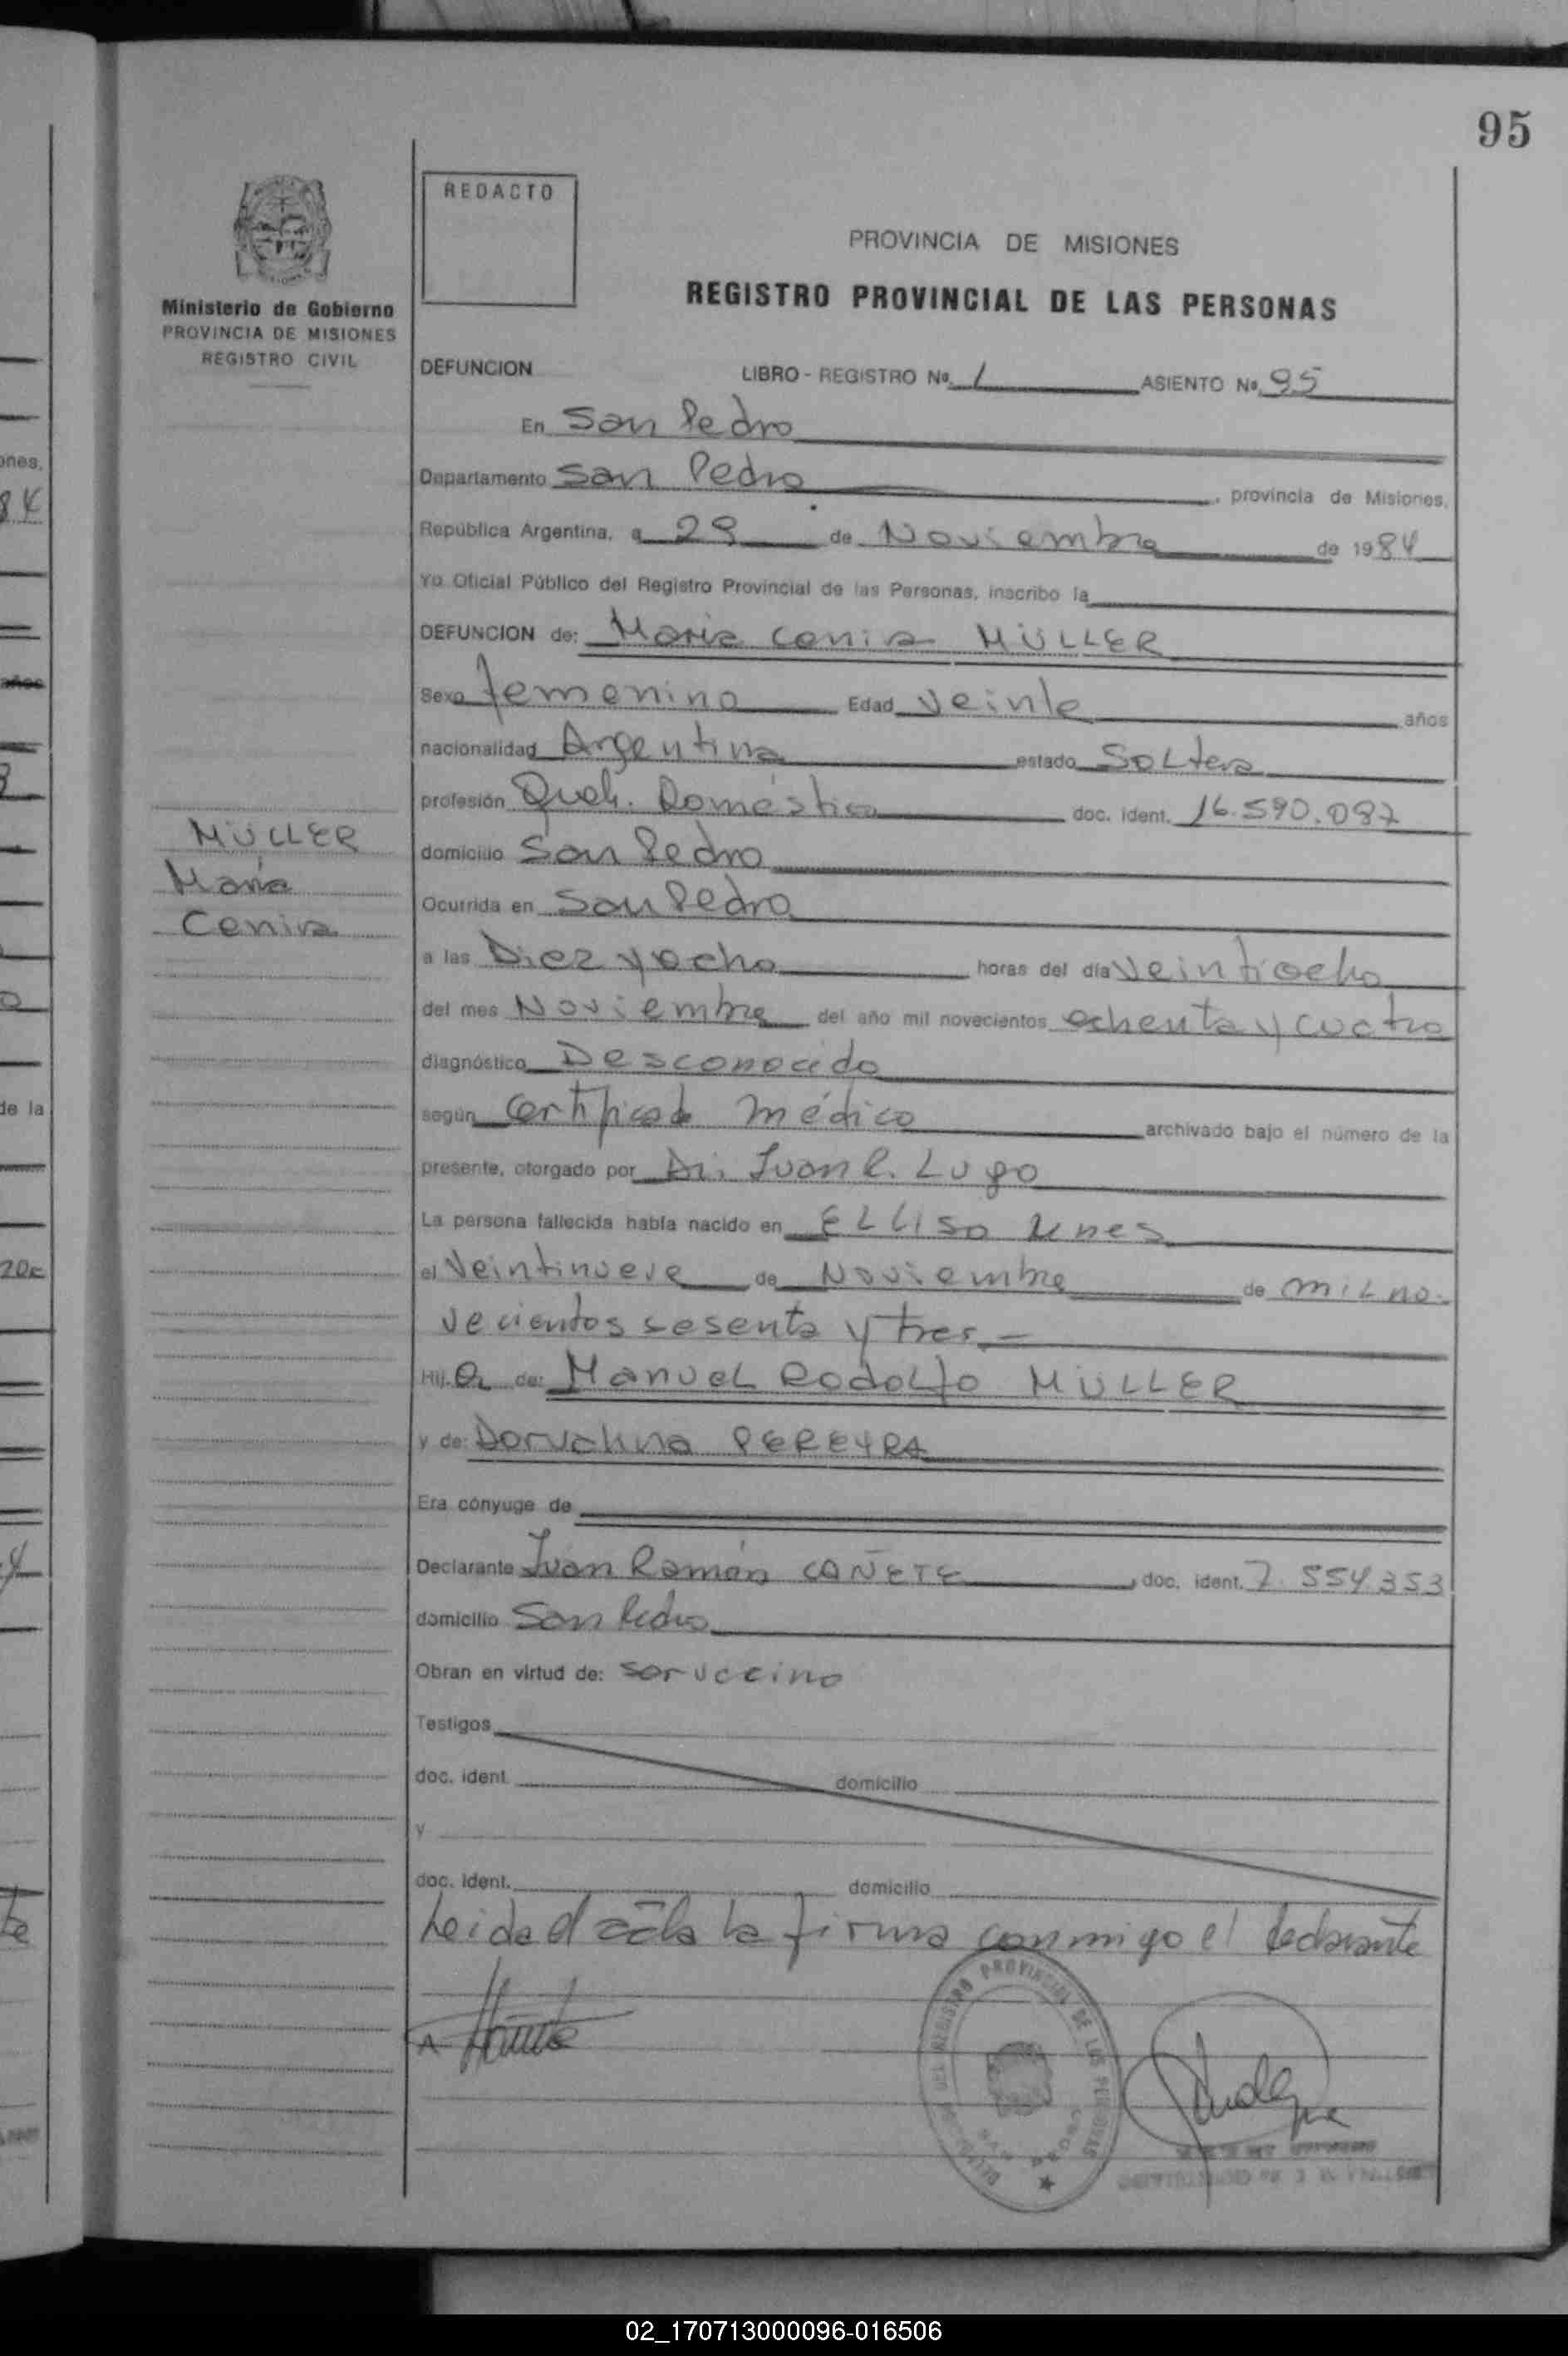 95
REDACTO
PROVINCIA DE MISIONES
REGISTRO PROVINCIAL DE LAS PERSONAS
Ministerio de Gobierno
PROVINCIA DE MISIONES
REGISTRO CIVIL
DEFUNCION LIBRO - REGISTRO Nº 1 ASIENTO Nº 95
En San Pedro
Departamento San Pedro, provincia de Misiones,
República Argentina, a 29 de Noviembre de 1984
Yo Oficial Público del Registro Provincial de las Personas, inscribo la
DEFUNCION de: Maria Cenira MÜLLER
Sexo femenino Edad veinte años
nacionalidad Argentina estado Soltera
profesión Queh. Doméstico doc. ident. 16.590.087
MÜLLER
María
Cenira
domicilio San Pedro
Ocurrida en San Pedro
a las Diez y ocho horas del día veintiocho
del mes Noviembre del año mil novecientos ochenta y cuatro
diagnóstico Desconocido
según Certificado médico archivado bajo el número de la
presente, otorgado por Dr. Juan R. Lugo
La persona fallecida había nacido en
el Veintinueve de Noviembre de mil no-
vecientos sesenta y tres.-
Hij a de: Manuel Rodolfo MÜLLER
y de: Dorvalina PEREYRA
Era cónyuge de
Declarante Juan Ramón CAÑETE, doc. ident. 7.554353
domicilio San Pedro
Obran en virtud de:
Testigos
doc. ident. domicilio
y
doc. ident. domicilio
Leida el acta la firma conmigo el declarante
REGISTRO PROVINCIAL DE LAS PERSONAS
02_170713000096-016506